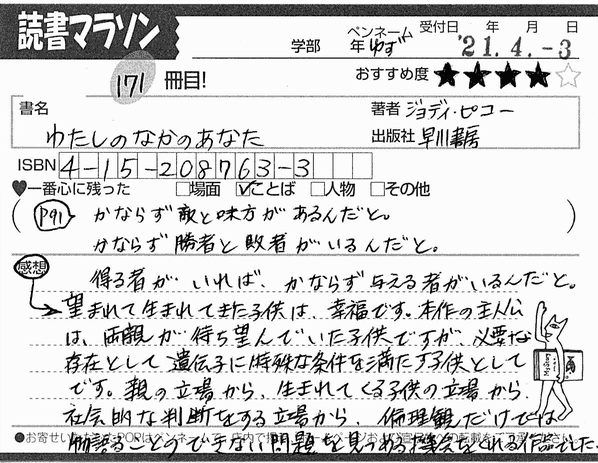 読書マラソン
171 冊目!
学部 年 ペンネーム ゆず 受付日 年 月 日
'21.4.-3
おすすめ度 ★★★★☆
書名 わたしのなかのあなた
著者 ジョディ・ピコー
出版社 早川書房
ISBN 4-15-208763-3
♥一番心に残った □場面 ☑ことば □人物 □その他
(P91) かならず敵と味方があるんだと。
かならず勝者と敗者がいるんだと。
感想
得る者がいれば、かならず与える者がいるんだと。
望まれて生まれてきた子供は、幸福です。本作の主人公
は、両親が待ち望んでいた子供ですが、必要な
存在として遺伝子に特殊な条件を満たす子供として
です。親の立場から、生まれてくる子供の立場から、
社会的な判断をする立場から、倫理観だけでは
できない問題を見つめる機会をくれる作品でした。
●お寄せいただいたPOPはペンネームで、店内で